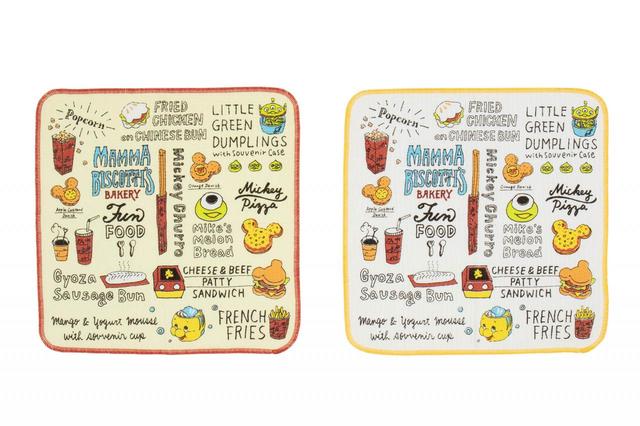 Popcorn
FRIED
CHICKEN
on CHINESE BUN
LITTLE
GREEN
DUMPLINGS
with Souvenir Case
MAMMA
BISCOTTI'S
BAKERY
Mickey Churro
Orange Danish
Mickey
Pizza
Apple Custard
Danish
Fun
FOOD
Mike's
Melon
Bread
Gyoza
Sausage Bun
CHEESE & BEEF
PATTY
SANDWICH
Mango & Yogurt Mousse
with souvenir cup
FRENCH
FRIES
Popcorn
FRIED
CHICKEN
on CHINESE BUN
LITTLE
GREEN
DUMPLINGS
with Souvenir Case
MAMMA
BISCOTTI'S
BAKERY
Mickey Churro
Orange Danish
Mickey
Pizza
Apple Custard
Danish
Fun
FOOD
Mike's
Melon
Bread
Gyoza
Sausage Bun
CHEESE & BEEF
PATTY
SANDWICH
Mango & Yogurt Mousse
with souvenir cup
FRENCH
FRIES